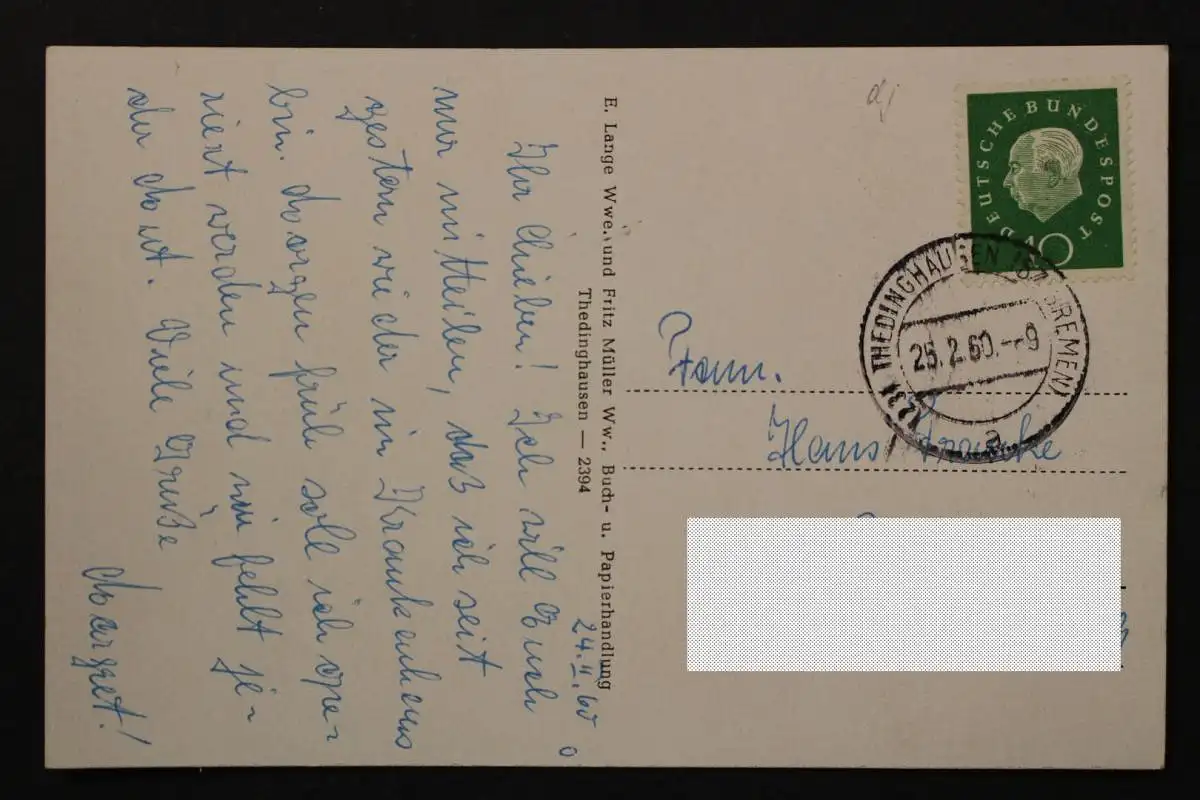 24.II.60
Ihr Lieben! Ich will Euch
nur mitteilen, daß ich seit
gestern wieder im Krankenhaus
bin. Morgen früh soll ich ope-
riert werden und mir fehlt je-
der Mut. Viele Grüße
Margret!
E. Lange Wwe. und Fritz Müller Ww., Buch- u. Papierhandlung
Thedinghausen — 2394
DEUTSCHE BUNDESPOST
10
THEDINGHAUSEN (BZ BREMEN)
25.2.60.--9
a
Fam.
Hans Francke